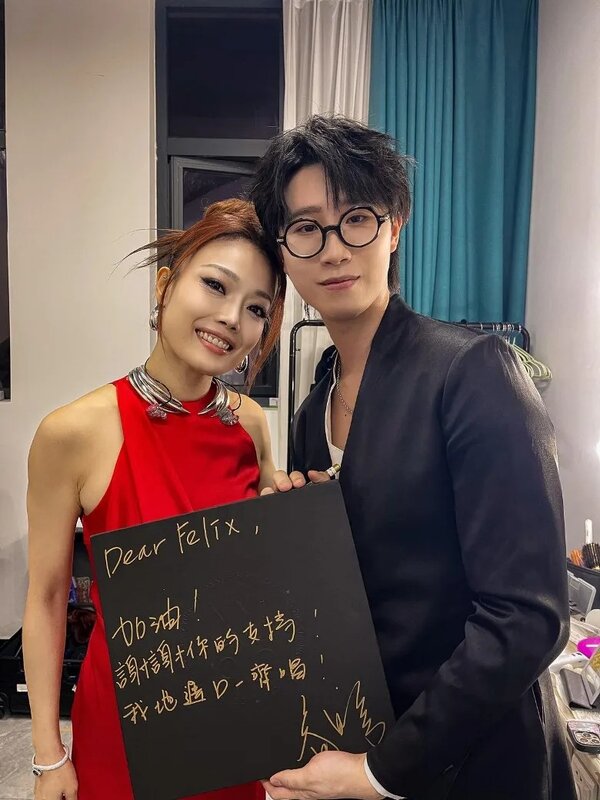 Dear Felix,
加油!
謝謝你的支持!
我地遲D一齊唱!